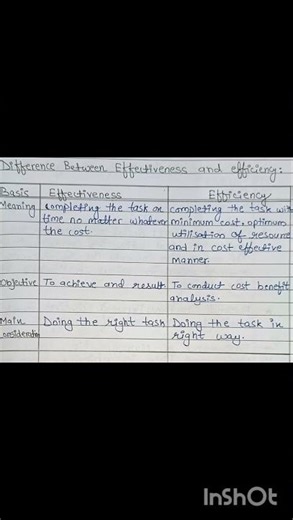 Difference Between Effectiveness and efficiency:
Basis Effectiveness Efficiency
Meaning completing the task on completing the task with
time no matter whatever minimum cost, optimum
the cost. utilisation of resource
and in cost effective
manner.
Objective To achieve end result To conduct cost benefit
analysis.
Main Doing the right task Doing the task in
consideration right way.
InShOt